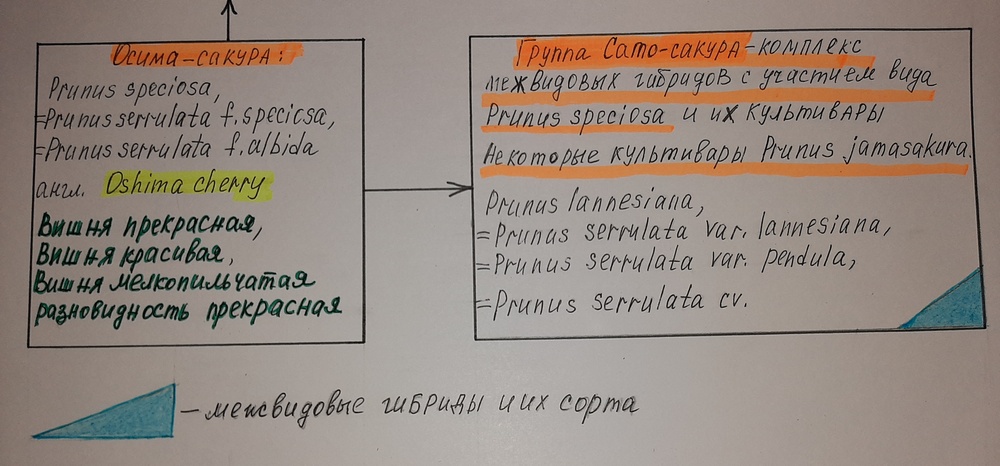 Осима-сакура:
Prunus speciosa,
=Prunus serrulata f. specicsa,
=Prunus serrulata f. albida
англ. Oshima cherry
Вишня прекрасная,
Вишня красивая,
Вишня мелкопильчатая
разновидность прекрасная
Группа Сато-сакура-комплекс
межвидовых гибридов с участием вида
Prunus speciosa и их культивары
Некоторые культивары Prunus jamasakura.
Prunus lannesiana,
=Prunus serrulata var. lannesiana,
=Prunus serrulata var. pendula,
=Prunus serrulata cv.
– межвидовые гибриды и их сорта